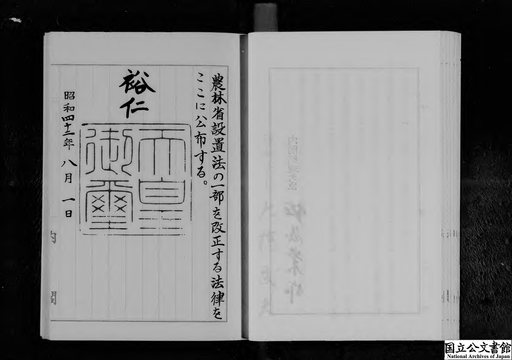 農林省設置法の一部を改正する法律を
ここに公布する。
裕仁
天皇
御璽
昭和四十三年 八月 一日
内閣
国立公文書館
National Archives of Japan